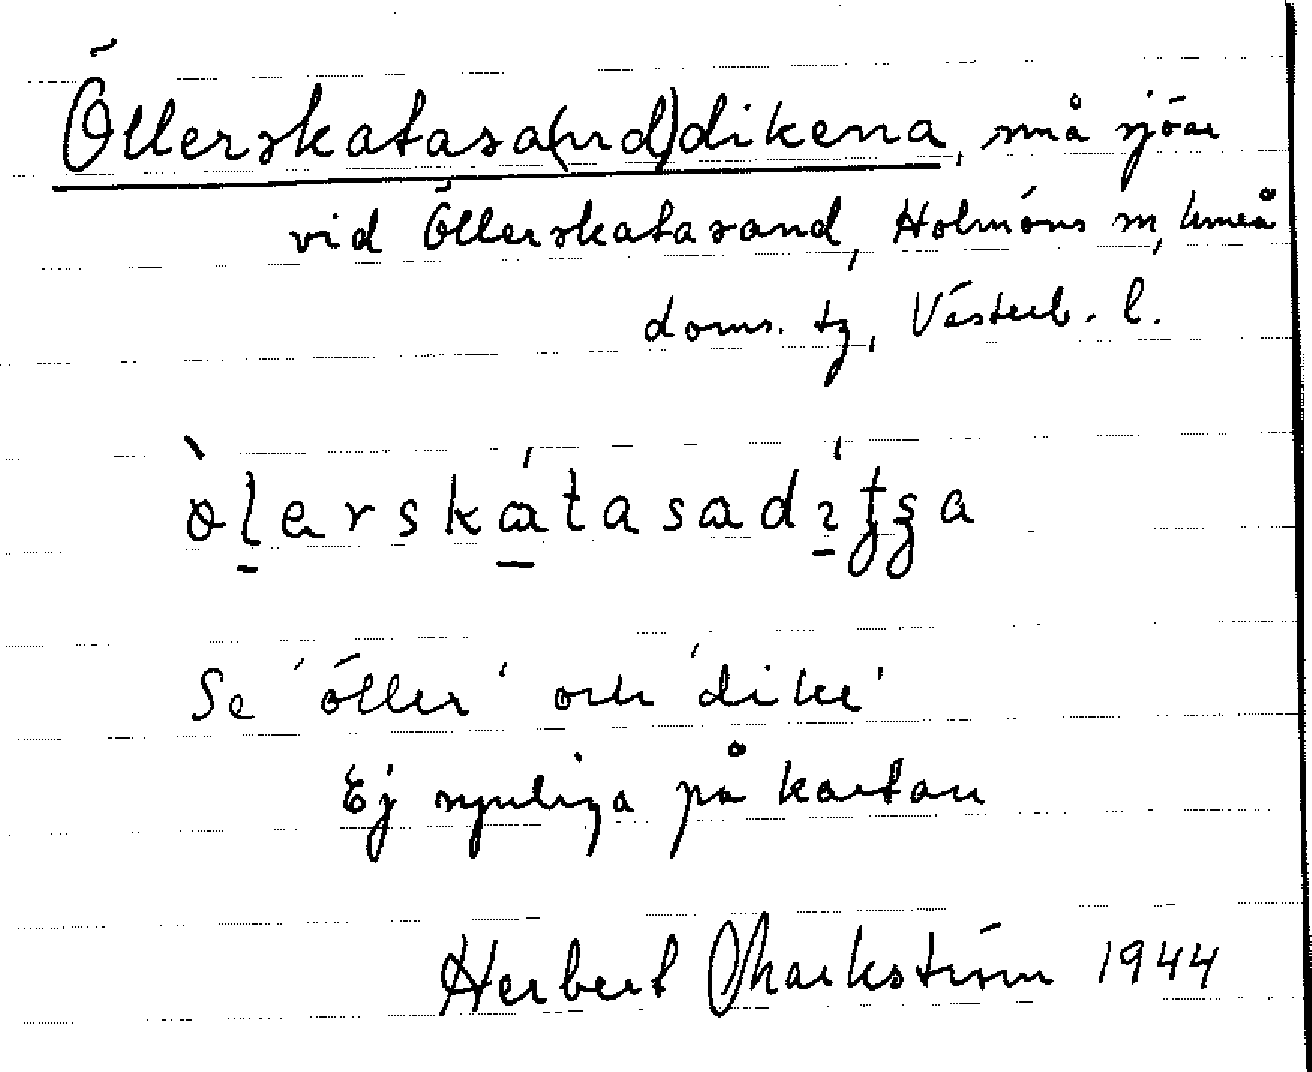 Öllerskatasa(nd)dikena, små sjöar
vid Öllerskatasand, Holmöns sn, Umeå
doms. tg, Västerb. l.
Se 'öller' och 'dike'
Ej synliga på kartan
Herbert Markström 1944